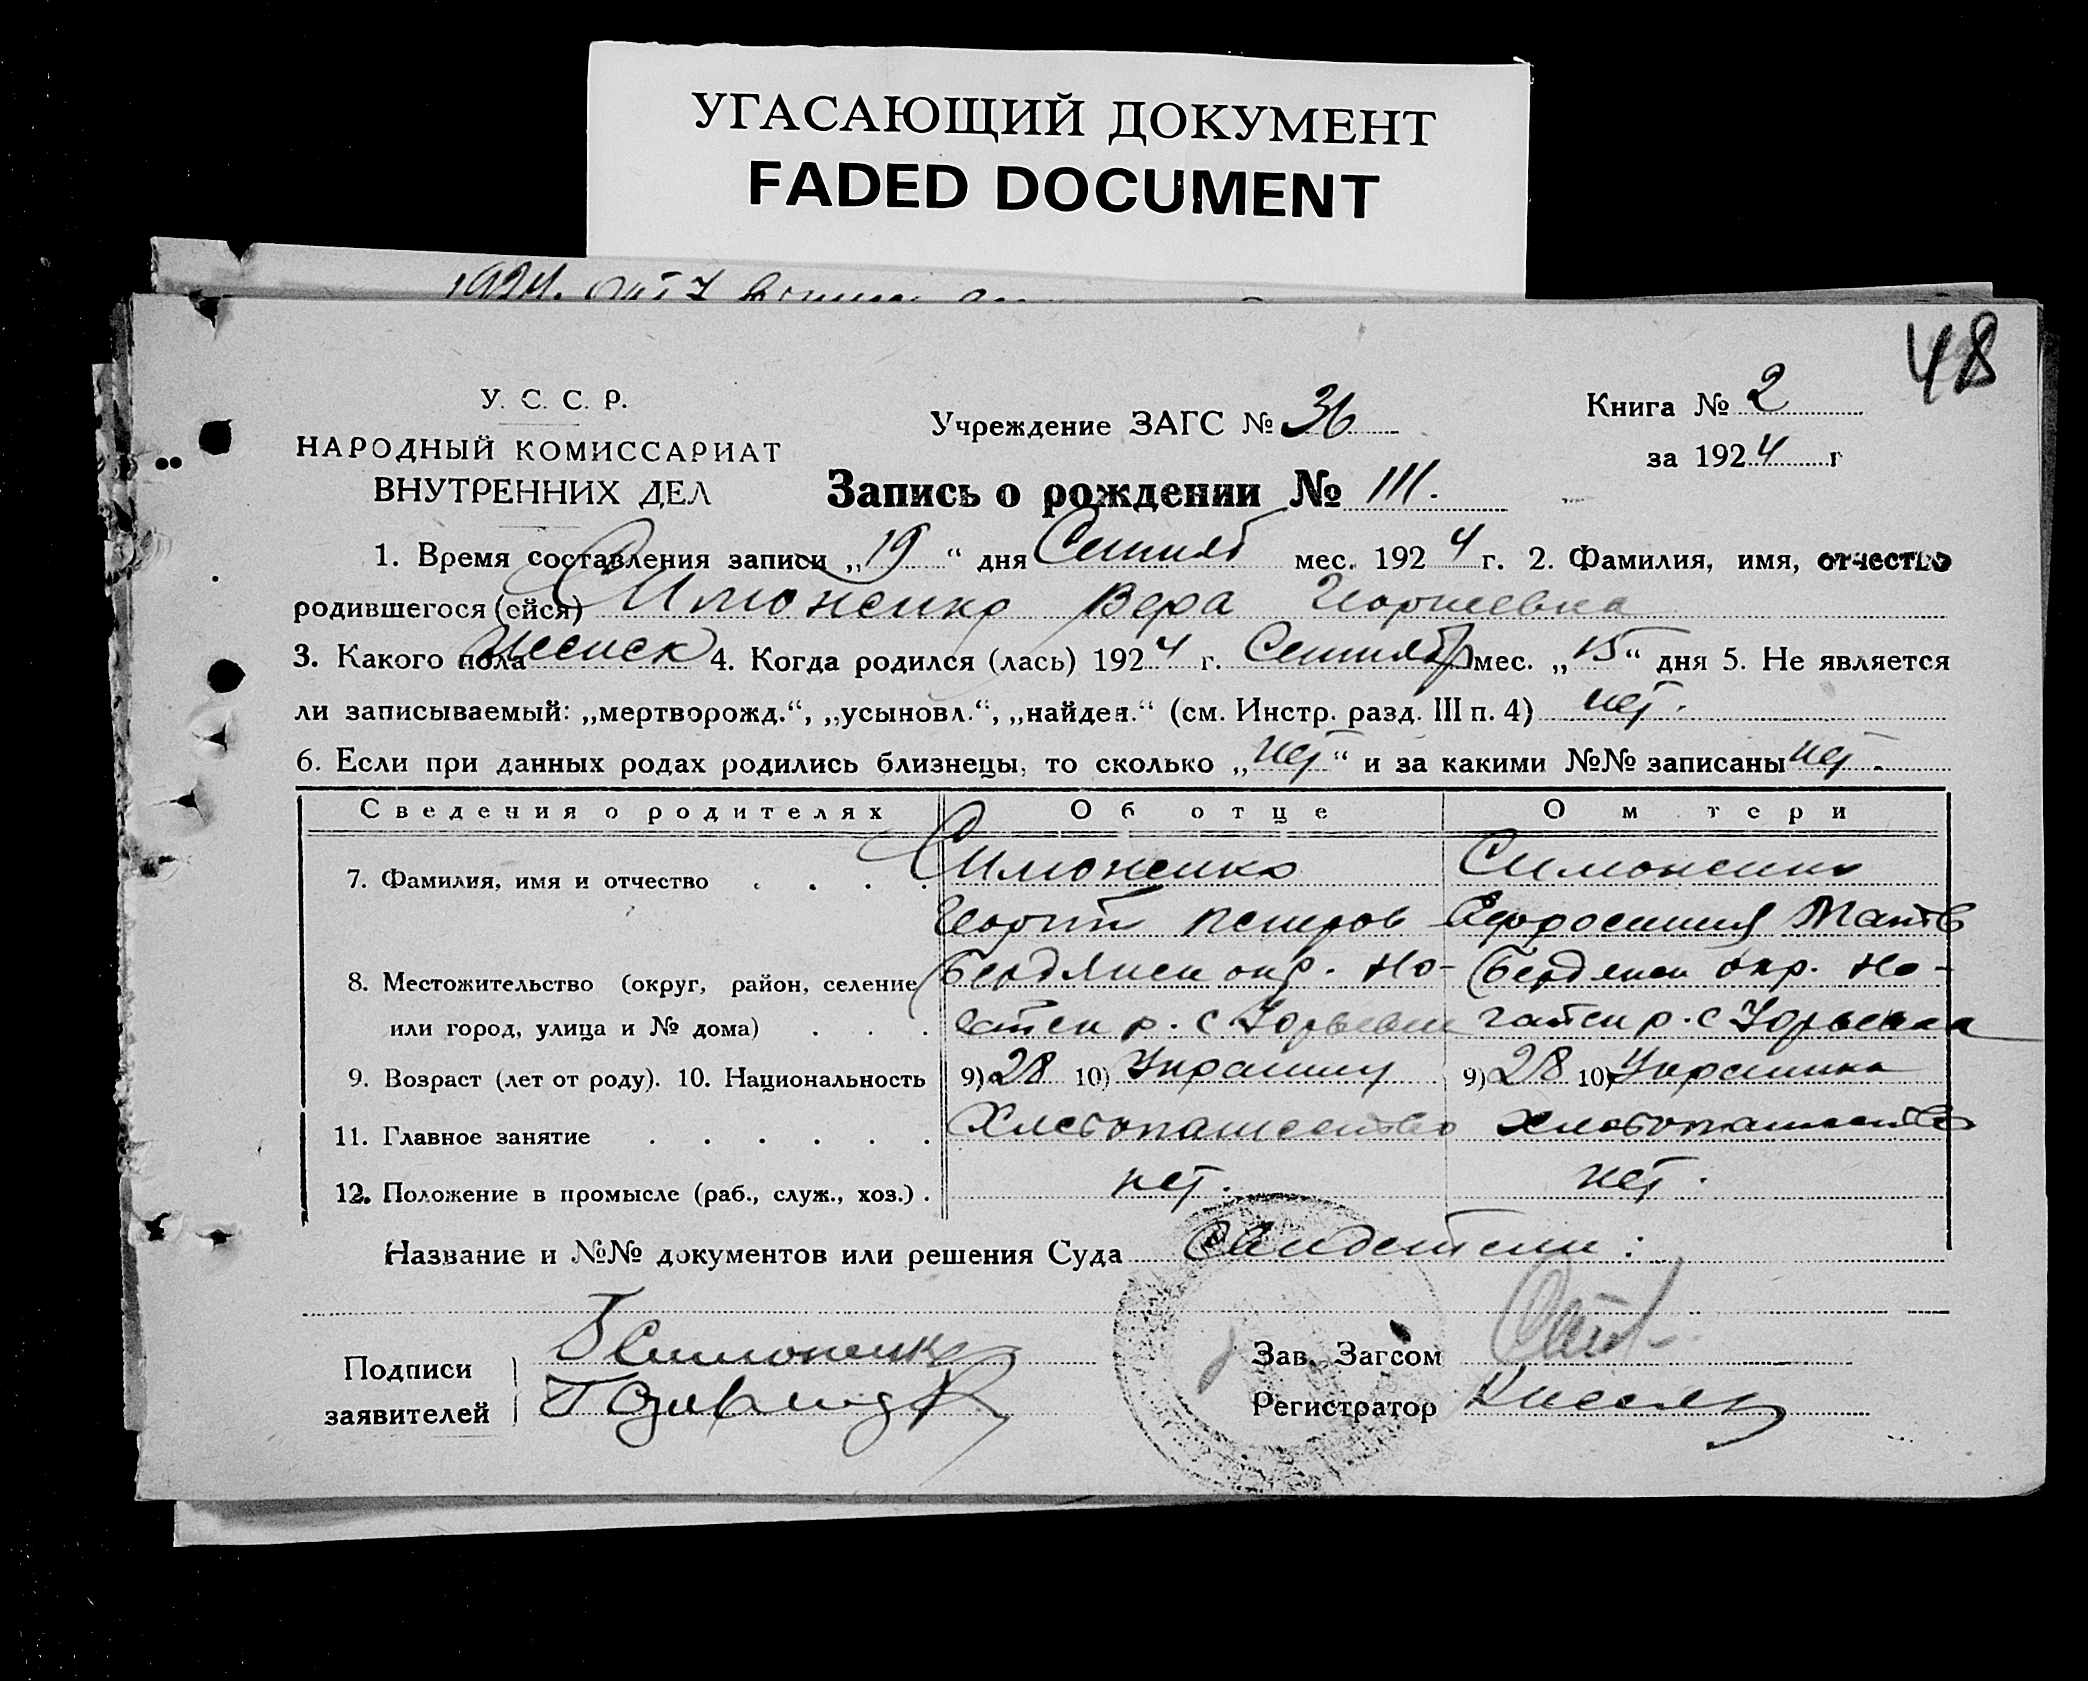 УГАСАЮЩИЙ ДОКУМЕНТ
FADED DOCUMENT
48
У. С. С. Р.
НАРОДНЫЙ КОМИССАРИАТ
ВНУТРЕННИХ ДЕЛ
Учреждение ЗАГС № 36
Книга № 2
за 1924 г
Запись о рождении № 111.
1. Время составления записи „19“ дня Сентяб мес. 1924 г. 2. Фамилия, имя, отчество
родившегося (ейся) Симоненко Вера Георгиевна
3. Какого пола женск 4. Когда родился (лась) 1924 г. Сентябр мес. „15“ дня 5. Не является
ли записываемый: „мертворожд.“, „усыновл.“, „найден.“ (см. Инстр. разд. III п. 4) нет.
6. Если при данных родах родились близнецы, то сколько „нет“ и за какими №№ записаны нет.
Сведения о родителях Об отце О м тери
7. Фамилия, имя и отчество Симоненко Симоненко
Георгий Петров Ефросиния Матв
8. Местожительство (округ, район, селение Бердянск окр. Но- Бердянск окр. Но-
или город, улица и № дома) гатск р. с Юрьевка гайск р. с Юрьевка
9. Возраст (лет от роду). 10. Национальность 9) 28 10) Украинец 9) 28 10) Украинка
11. Главное занятие Хлебопашество Хлебопашество
12. Положение в промысле (раб., служ., хоз.) нет. нет.
Название и №№ документов или решения Суда Свидетели:
Подписи
заявителей
Симоненко
Зав. Загсом
Регистратор Кисель